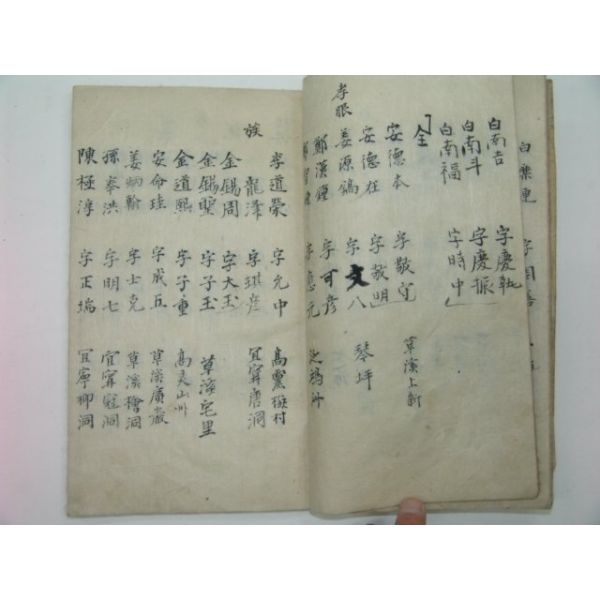 白樂連 字國
白南吉 字慶執
白南斗 字慶振
白南福 字時中
仝
安德本 字敬守 草溪上新
安德在 字敬明
姜源鎬 字文八 琴坪
李眼 鄭漢鍾 字可彦
字 元
李道榮 字允中 高靈 村
族 龍澤 字琪彦 宜寧唐洞
金錫周 字大玉
金錫 字子玉 草溪宅里
金道熙 字子重 高灵山州
安命珪 字成五 草溪廣巖
姜炳 字士克 草溪檜洞
孫奉洪 字明七 宜寧 洞
陳極淳 字正端 宜寧柳洞